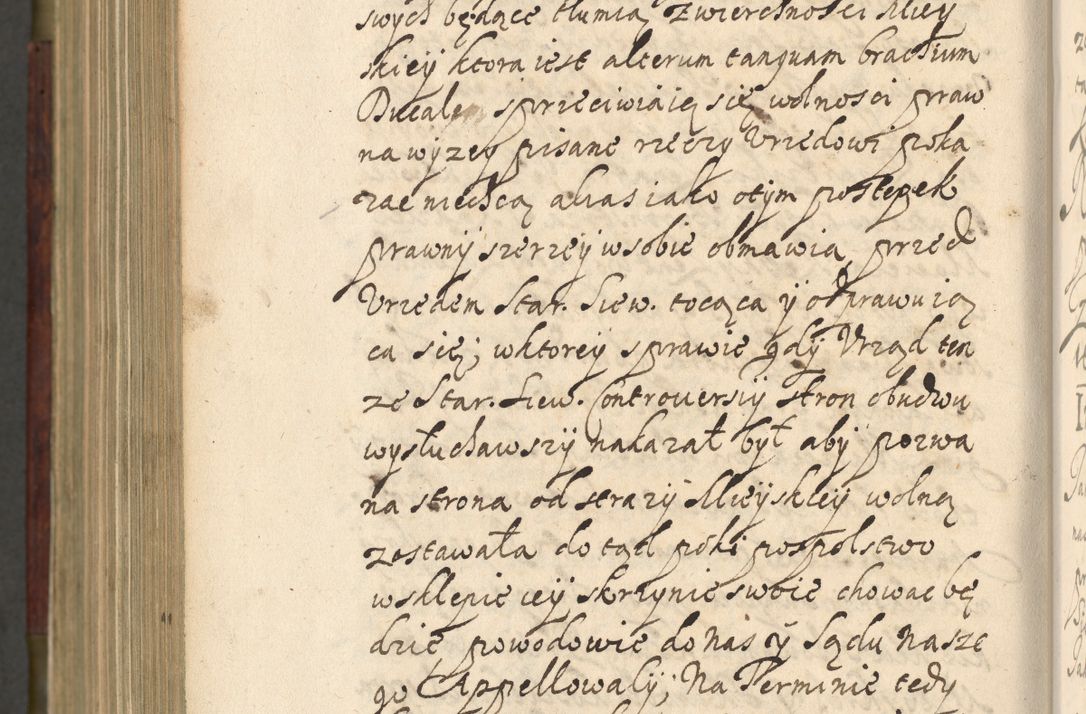 swych będące tłumią Zwierchności Miey
skiey ktora iest alterum tanquam brachium
Ducale sprzeciwiaią się wolności praw
na wyzey pisane rzeczy Vrzędowi poka
zac niechcą alias iako otym postępek
prawny szerzey wsobie obmawia przed
Vrzędem Star. Siew. tocząca y odprawuią
ca się; wktorey sprawie gdy Vrząd ten
ze Star. Siew. Controuersiy stron obudwu
wysłuchawszy nakazał był aby pozwa
na strona od strazy Mieyskiey wolną
zostawała do tąd poki pospolstwo
wsklepie iey skrzynie swoie chowac bę
dzie powodowie do nas y Sądu nasze
go Appellowaly; Na Terminie tedy